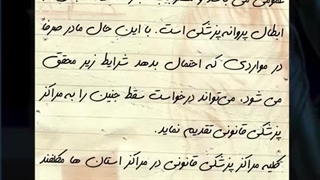 ابطال پروانه پزشکی است. با این حال مادر صرفاً
در مواردی که احتمال بدهد شرایط زیر محقق
می شود، می‌تواند درخواست سقط جنین را به مراکز
پزشکی قانونی تقدیم نماید.
کلیه مراکز پزشکی قانونی در مراکز استان ها مکلفند